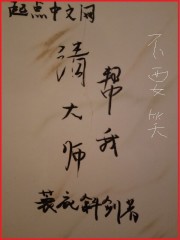 起点中文网
请大师
帮我
蓑衣斜剑
不要笑